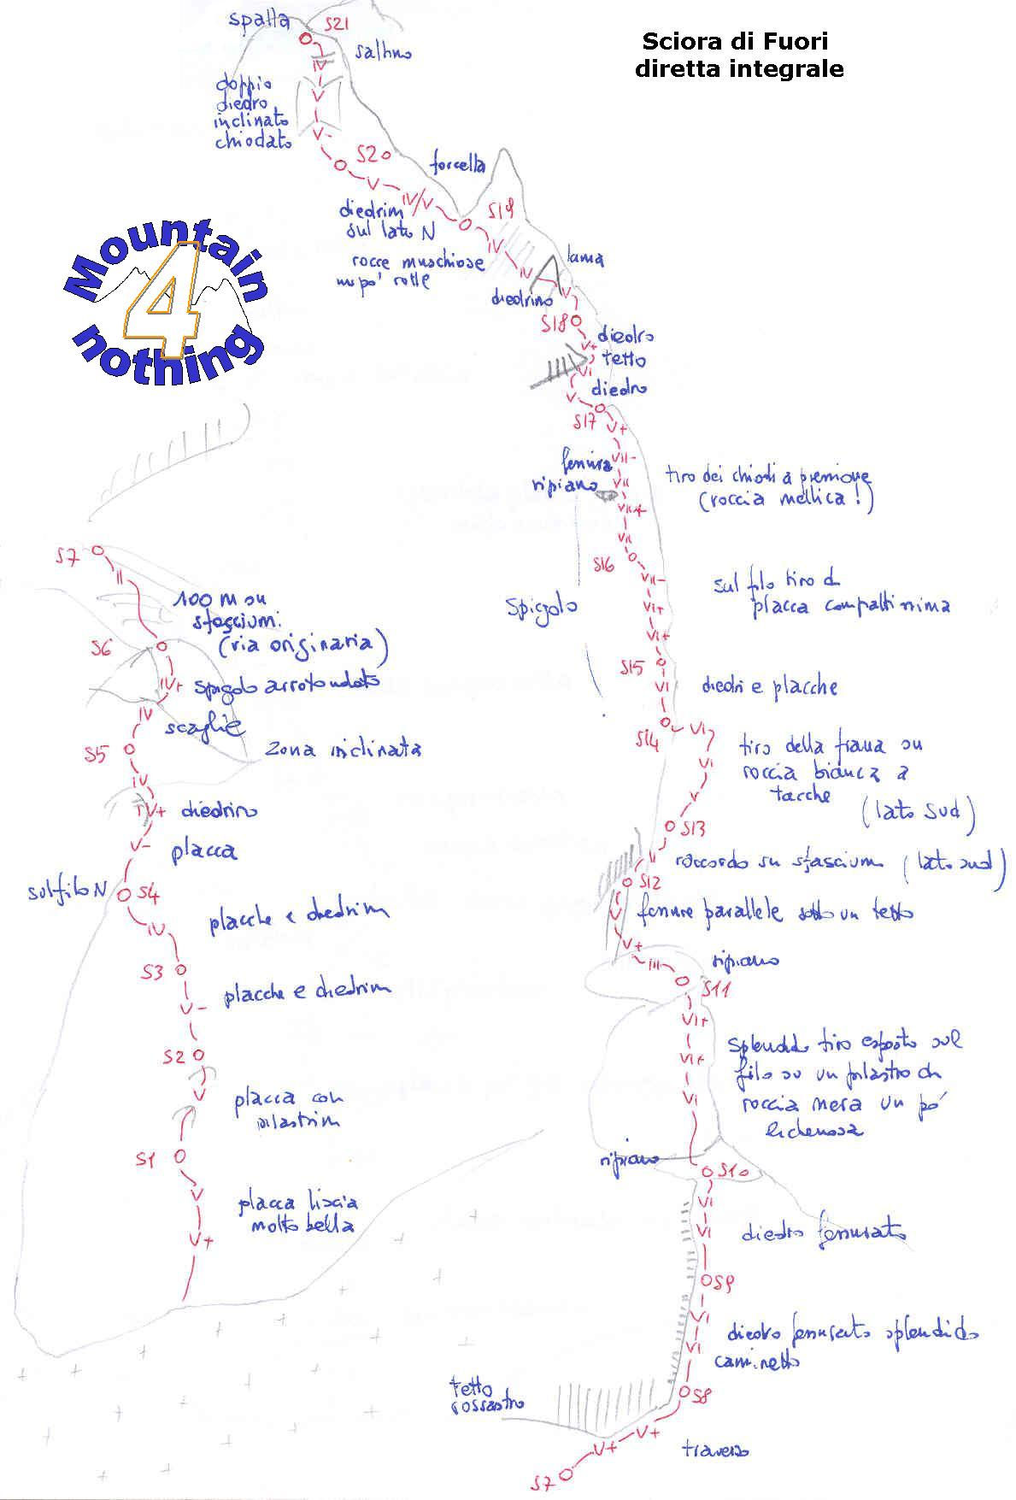 Sciora di Fuori
diretta integrale
Mountain
4
nothing
spalla
S21
saltino
IV
doppio
diedro
inclinato
chiodato
V
V-
S20
forcella
V
IV/V
S19
diedrini
sul lato N
rocce muschiose
un po' rotte
IV
IV
lama
diedrino
V
S18
diedro
V+
tetto
VI
diedro
V
S17
V+
fessura
VII-
ripiano
VII
VII+
VII
tiro dei chiodi a pressione
(roccia mellica!)
S16
VII-
sul filo tiro di
placca compattissima
VI+
VI+
Spigolo
S15
VI
diedri e placche
S14
VI
tiro della frana su
roccia bianca a
tacche
(lato sud)
VI
V
S13
II
raccordo su sfasciumi (lato sud)
S12
fessure parallele sotto un tetto
V
V+
III
ripiano
S11
VI+
VI+
VI
splendido tiro esposto sul
filo su un pilastro di
roccia nera un po'
lichenosa
ripiano
S10
VI
VI
diedro fessurato
S9
VI
VI
diedro fessurato splendido
caminetto
tetto
rossastro
S8
V+
V+
traverso
S7
S7
II
100 m su
sfasciumi
(via originaria)
S6
IV+
spigolo arrotondato
IV
scaglie
S5
zona inclinata
IV
IV+
diedrino
V-
placca
sul filo N
S4
placche e diedrini
IV
S3
placche e diedrini
V-
S2
V
placca con
pilastrini
S1
V
placca liscia
molto bella
V+